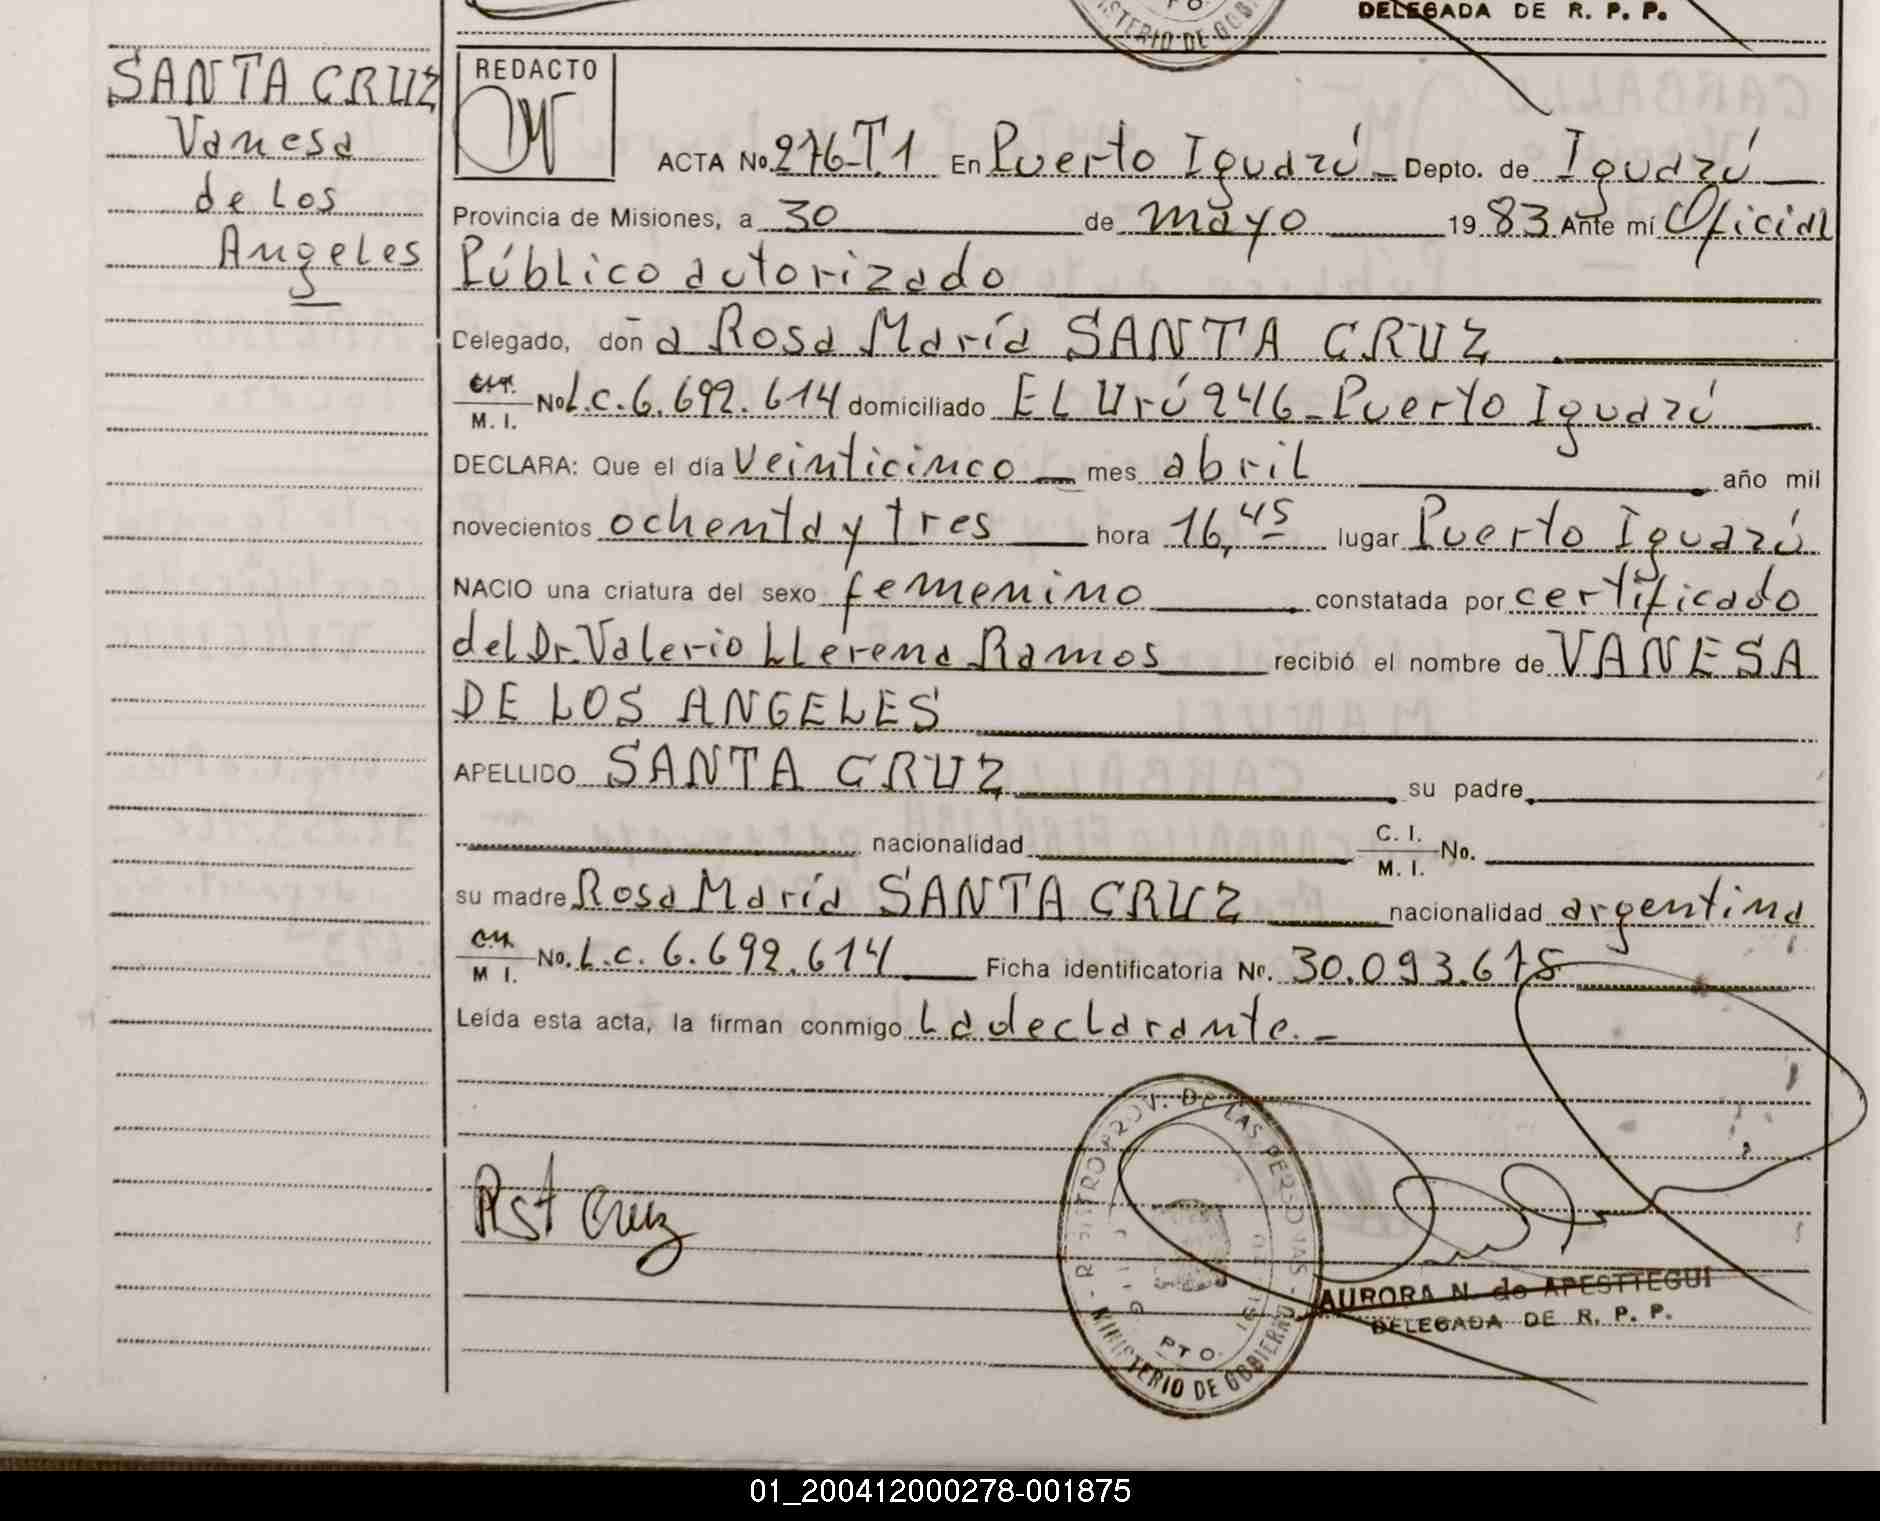 DELEGADA DE R. P. P.
MINISTERIO DE GOB
SANTA CRUZ
Vanesa
de los
Angeles
REDACTO
ACTA No. 276-T.1 En Puerto Iguazú - Depto. de Iguazú
Provincia de Misiones, a 30 de mayo 1983 Ante mí Oficial
Público autorizado
Delegado, doña Rosa María SANTA CRUZ
M. I. No L.C. 6.692.614 domiciliado El Urú 246 - Puerto Iguazú
DECLARA: Que el día veinticinco mes abril año mil
novecientos ochenta y tres hora 16,45 lugar Puerto Iguazú
NACIO una criatura del sexo femenino constatada por certificado
del Dr. Valerio Llerena Ramos recibió el nombre de VANESA
DE LOS ANGELES
APELLIDO SANTA CRUZ su padre
nacionalidad C. I. M. I. No.
su madre Rosa María SANTA CRUZ nacionalidad argentina
M I. No. L.C. 6.692.614 Ficha identificatoria No. 30.093.675
Leída esta acta, la firman conmigo La declarante. -
Rst Cruz
PROV. DE LAS PERSONAS
PTO.
MINISTERIO DE GOBIERNO
AURORA N. de APESTTEGUI
DELEGADA DE R. P. P.
01_200412000278-001875